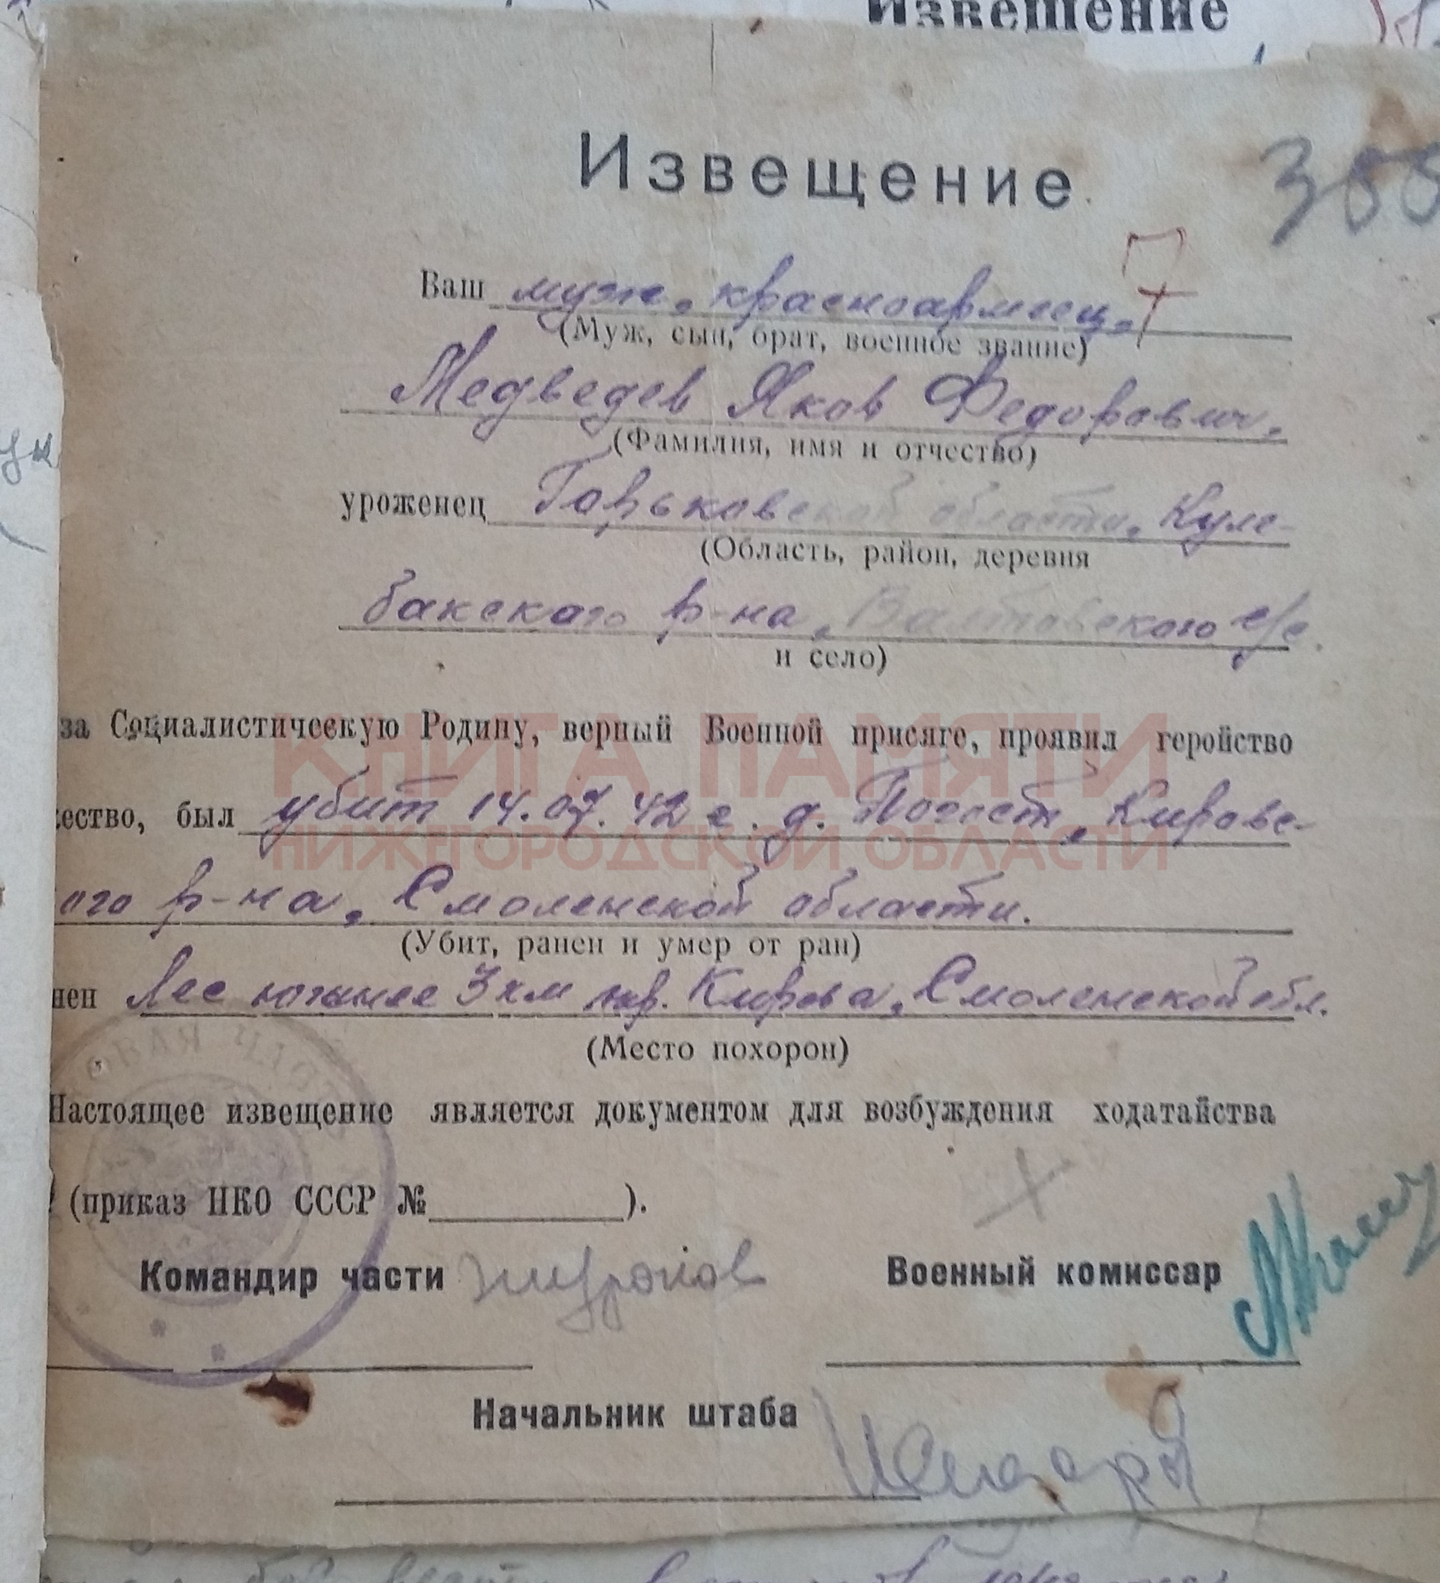 Извещение
Извещение
Ваш муж, красноармеец,
(Муж, сын, брат, военное звание)
Медведев Яков Федорович,
(Фамилия, имя и отчество)
уроженец Горьковской области, Куле-
(Область, район, деревня
бакского р-на, с/с.
и село)
за Социалистическую Родину, верный Военной присяге, проявил геройство
КНИГА ПАМЯТИ
ество, был убит 14.07.42 г. д. Погост, Кировс-
НИЖЕГОРОДСКОЙ ОБЛАСТИ
ого р-на, Смоленской области.
(Убит, ранен и умер от ран)
нен Лес южнее 3 км гор. Кирова, Смоленской обл.
(Место похорон)
Настоящее извещение является документом для возбуждения ходатайства
(приказ НКО СССР № ).
Командир части Военный комиссар
Начальник штаба